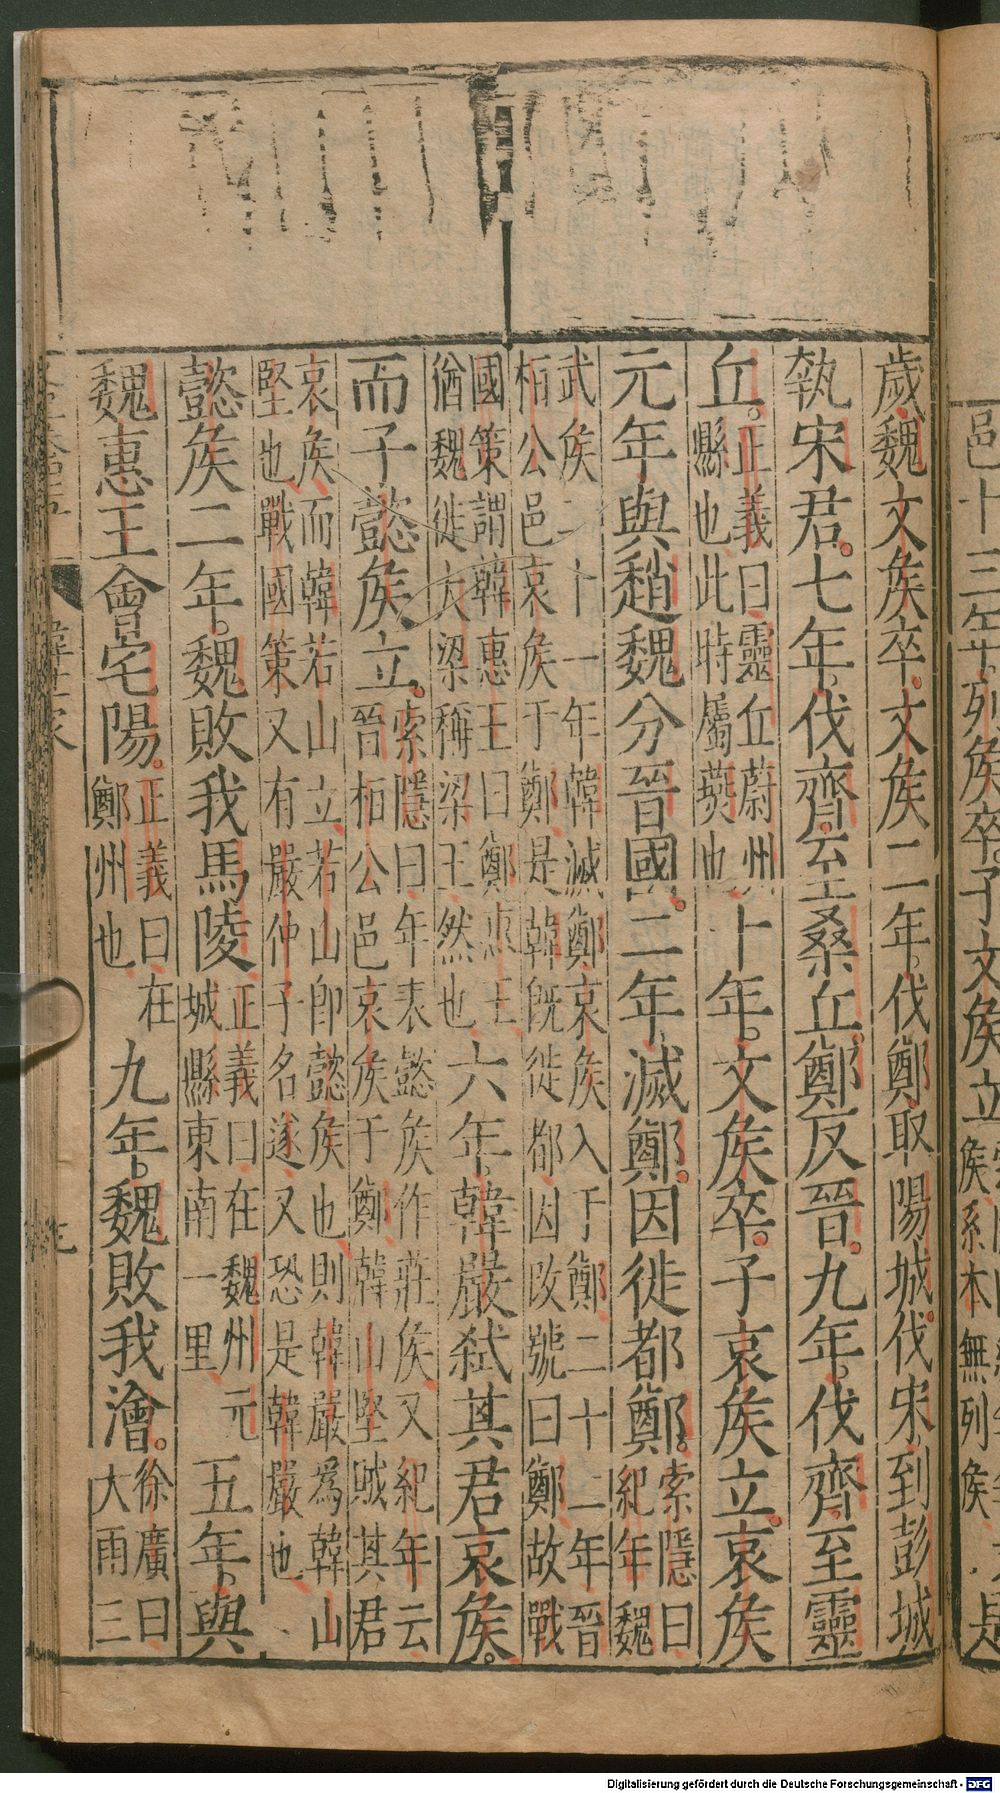 歲魏文矦卒文矦二年伐鄭取陽城伐宋到彭城
執宋君七年伐齊至桑丘鄭反晉九年伐齊至靈
丘正義曰靈丘蔚州
縣也此時屬燕也
十年文矦卒子哀矦立哀矦
元年與趙魏分晉國二年滅鄭因徙都鄭索隱曰
紀年魏
武矦二十一年韓滅鄭哀矦入于鄭二十二年晉
桓公邑哀矦于鄭是韓旣徙都因改號曰鄭故戰
國策謂韓惠王曰鄭惠王
猶魏徙大梁稱梁王然也
六年韓嚴弒其君哀矦
而子懿矦立索隱曰年表懿矦作莊矦又紀年云
晉桓公邑哀矦于鄭韓山堅賊其君
哀矦而韓若山立若山卽懿矦也則韓嚴爲韓山
堅也戰國策又有嚴仲子名遂又恐是韓嚴也
懿矦二年魏敗我馬陵正義曰在魏州元
城縣東南一里
五年與
魏惠王會宅陽正義曰在
鄭州也
九年魏敗我澮徐廣曰
大雨三
邑十三年列矦卒子文矦立
矦系本無列矦
韓世家
Digitalisierung gefördert durch die Deutsche Forschungsgemeinschaft - DFG